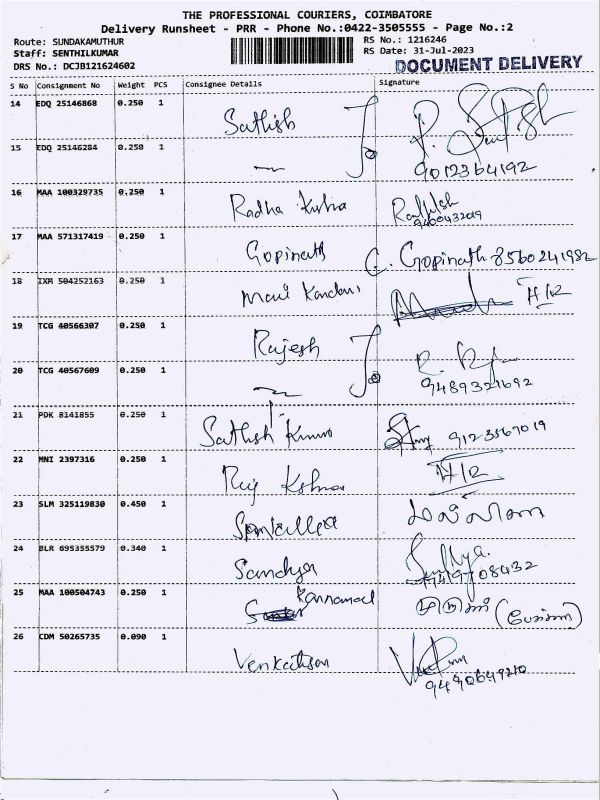 THE PROFESSIONAL COURIERS, COIMBATORE
Delivery Runsheet - PRR - Phone No.:0422-3505555 - Page No.:2
Route: SUNDAKAMUTHUR
RS No.: 1216246
Staff: SENTHILKUMAR
RS Date: 31-Jul-2023
DRS No.: DCJB121624602
DOCUMENT DELIVERY
S No Consignment No Weight PCS Consignee Details Signature
14 EDQ 25146868 0.250 1 Sathish
15 EDQ 25146284 0.250 1 9012364192
16 MAA 100329735 0.250 1 Radha
17 MAA 571317419 0.250 1 Gopinath G. Gopinath 8560241982
18 IXM 504252163 0.250 1 Mani H/R
19 TCG 40566307 0.250 1 Rajesh
20 TCG 40567609 0.250 1 9489321692
21 PDK 8141855 0.250 1 Sathish 9123567019
22 MNI 2397316 0.250 1 H/R
23 SLM 325119830 0.450 1
24 BLR 695355579 0.340 1 Sandya
25 MAA 100504743 0.250 1
26 CDM 50265735 0.090 1
9490649210